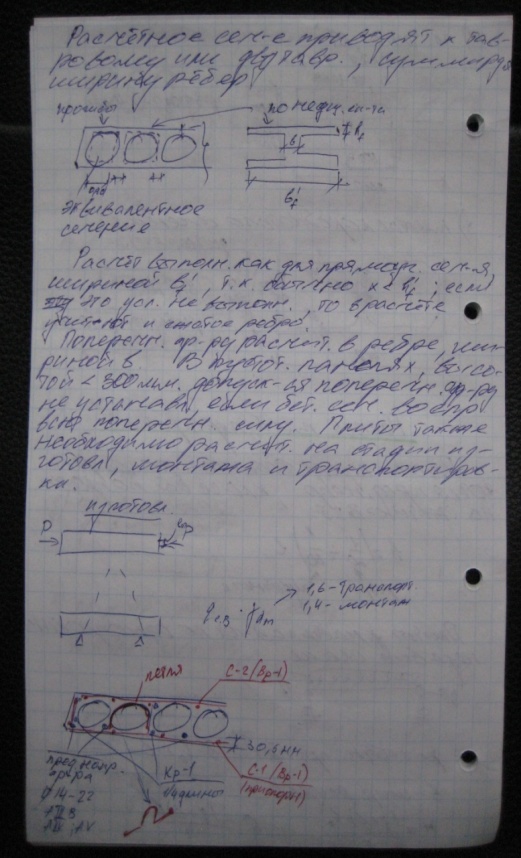 Расчётное сеч-е приводят к тав-
ровому или двутавр., суммируя
ширину рёбер
пустоты
по недел.
b
b'f
Эквивалентное
сечение
Расчёт выполн. как для прямоуг. сеч-я,
шириной b'f, т.к. обычно x < h'f; если
это усл. не выполн., то в расчёте
учитют и сжатое ребро.
Поперечн. ар-ру расчит. в ребре, ши-
риной b. В пустот. панелях, высо-
той < 300мм. допуск-ся поперечн. ар-ру
не устанавл, если бет. сеч. воспр
всю поперечн. силу. Плиты также
необходимо расчит. на стадии из-
готовл, монтажа и транспортиров-
ки.
изготовл.
P
eop
qсв · γdm
1,6-транспорт.
1,4- монтаж
петля
С-2 (Вр-1)
30,5мм
преднапр.
ар-ра
Кр-1
С-1 (Вр-1)
∅14-22